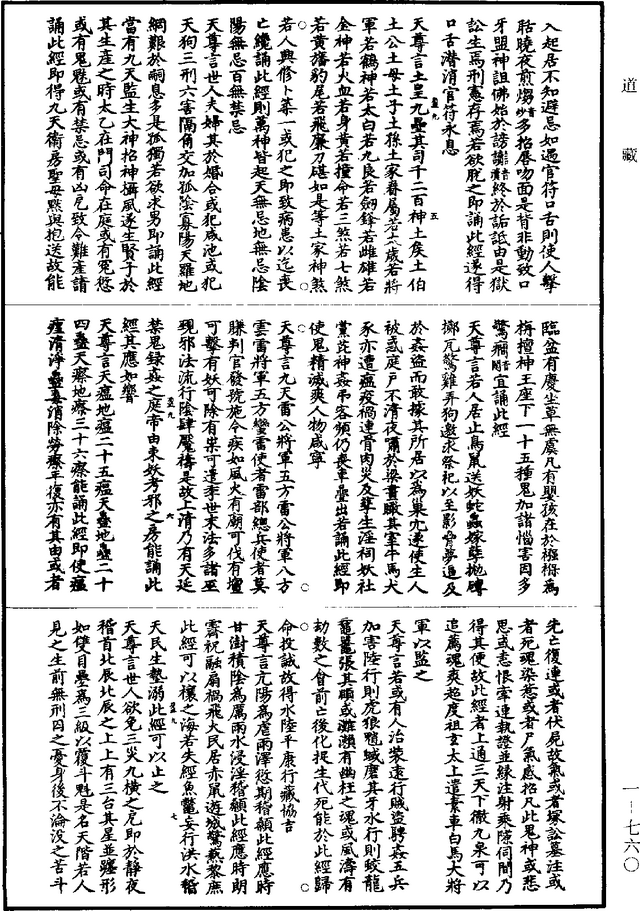 道藏
入起居不知避忌如遇官符口舌則使人擊
聒曉夜煎煼啀多招唇吻面是背非動致口
牙盟神詛佛始於謗讟終於詬詆由是獄
訟生焉刑憲存焉若欲脫之即誦此經遂得
口舌潛消官符永息
天尊言土皇九壘其司千二百神土侯土伯
土公土母土子土孫土家眷屬若太歲若將
軍若鶴神若太白若九良若劍鋒若雌雄若
金神若火血若身黃若撞命若三煞若七煞
若黃旛豹尾若飛廉刀砧如是等土家神煞
若人興修卜築一或犯之即致病患以迄喪
亡纔誦此經則萬神皆起天無忌地無忌陰
陽無忌百無禁忌
天尊言世人夫婦其於婚合或犯咸池或犯
天狗三刑六害隔角交加孤陰寡陽天羅地
網艱於嗣息多是孤獨若欲求男即誦此經
當有九天監生大神招神攝風遂生賢子於
其生產之時太乙在門司命在庭或有冤愆
或有鬼魃或有禁忌或有凶厄致令難產請
誦此經即得九天衛房聖母默與抱送故能
臨盆有慶坐草無虞凡有嬰孩在於襁褓為
栴檀神王座下一十五種鬼加諸惱害因多
驚癇宜誦此經
天尊言若人居止鳥鼠送妖蛇蟲嫁孽拋磚
擲瓦驚雞弄狗邀求祭祀以至影脅夢逼及
於姦盜而敢據其所居以為巢穴遂使生人
被惑庭戶不清夜嘯於梁晝瞰其室牛馬犬
豕亦遭瘟疫禍連骨肉災及孳生淫祠妖社
黨庇神姦弔客頻仍喪車疊出若誦此經即
使鬼精滅爽人物咸寧
天尊言九天雷公將軍五方雷公將軍八方
雲雷將軍五方蠻雷使者雷部總兵使者莫
賺判官發號施令疾如風火有廟可伐有壇
可擊有妖可除有祟可遣季世末法多諸巫
覡邪法流行陰肆魘禱是故上清乃有天延
禁鬼錄姦之庭帝由束妖考邪之房能誦此
經其應如響
天尊言天瘟地瘟二十五瘟天蠱地蠱二十
四蠱天瘵地瘵三十六瘵能誦此經即使瘟
㾮清淨蠱毒消除勞瘵平復亦有其由或者
先亡復連或者伏屍故氣或者塚訟墓注或
者死魂染惹或者尸氣感招凡此鬼神或悲
思或恚恨牽連執證並緣注射乘隙伺間乃
得其便故此經者上通三天下徹九泉可以
追薦魂爽超度祖玄太上遣素車白馬大將
軍以監之
天尊言若或有人治裝遠行賊盜騁姦五兵
加害陸行則虎狼魑魅磨其牙水行則蛟龍
黿鼉張其頤或灘瀨有幽枉之魂或風濤有
劫數之會前亡後化捉生代死能於此經歸
命投誠故得水陸平康行藏協吉
天尊言亢陽為虐雨澤愆期稽顙此經應時
甘澍積陰為厲雨水浸淫稽顙此經應時朗
霽祝融扇禍飛火民居赤鼠遊城驚爇黎庶
此經可以禳之海若失經魚鱉妄行洪水稽
天民生墊溺此經可以止之
天尊言世人欲免三災九橫之厄即於靜夜
稽首北辰北辰之上上有三台其星並躔形
如雙目疊為三級以覆斗魁是名天階若人
見之生前無刑囚之憂身後不淪沒之苦斗
一－七六〇